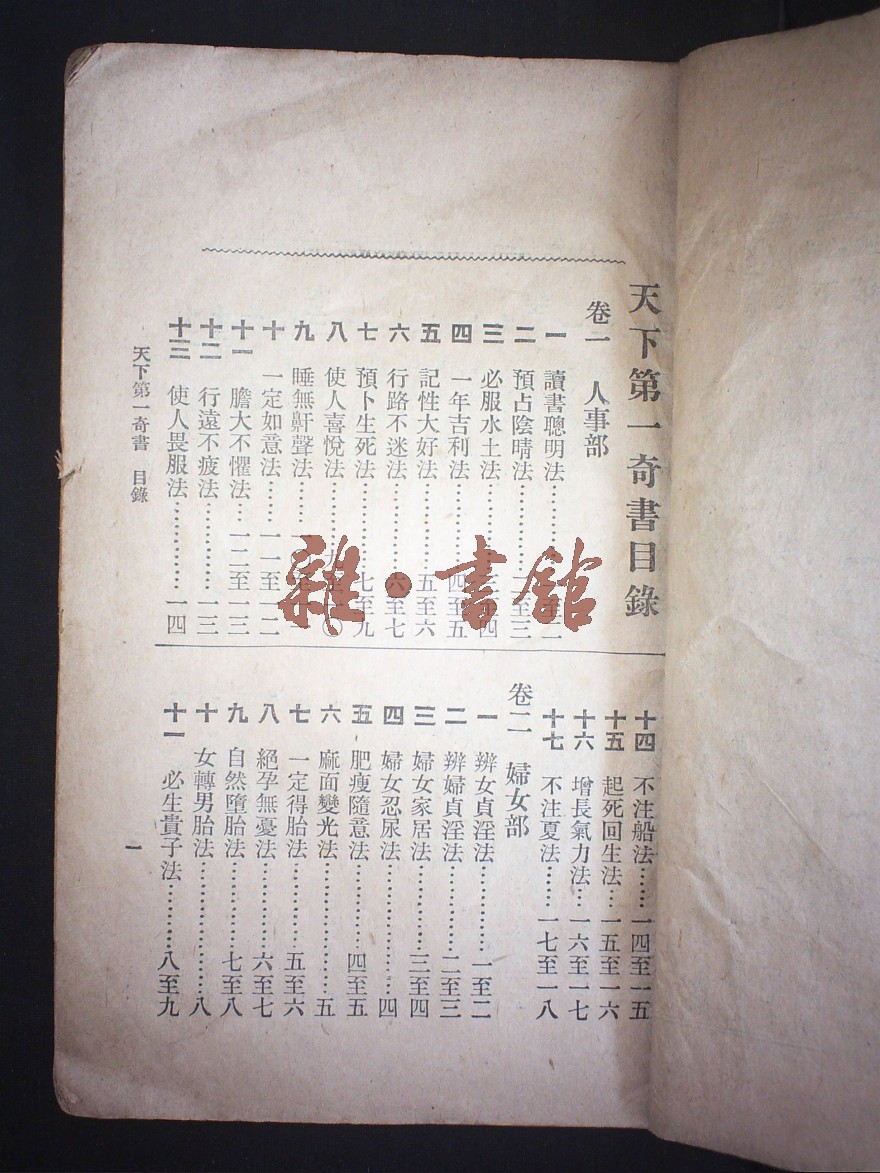 天下第一奇書目錄
卷一　人事部
一　讀書聰明法…………一至二
二　預占陰晴法…………二至三
三　必服水土法…………三至四
四　一年吉利法…………四至五
五　記性大好法…………五至六
六　行路不迷法…………六至七
七　預卜生死法…………七至九
八　使人喜悅法…………九至一〇
九　睡無鼾聲法…………
十　一定如意法……一一至一二
十一　膽大不懼法…一二至一三
十二　行遠不疲法…………一三
十三　使人畏服法…………一四
十四　不注船法……一四至一五
十五　起死回生法…一五至一六
十六　增長氣力法…一六至一七
十七　不注夏法……一七至一八
卷二　婦女部
一　辨女貞淫法…………一至二
二　辨婦貞淫法…………二至三
三　婦女家居法…………三至四
四　婦女忍尿法………………四
五　肥瘦隨意法…………四至五
六　麻面變光法………………五
七　一定得胎法…………五至六
八　絕孕無憂法…………六至七
九　自然墮胎法…………七至八
十　女轉男胎法………………八
十一　必生貴子法………八至九
天下第一奇書　目錄
一
雜·書館